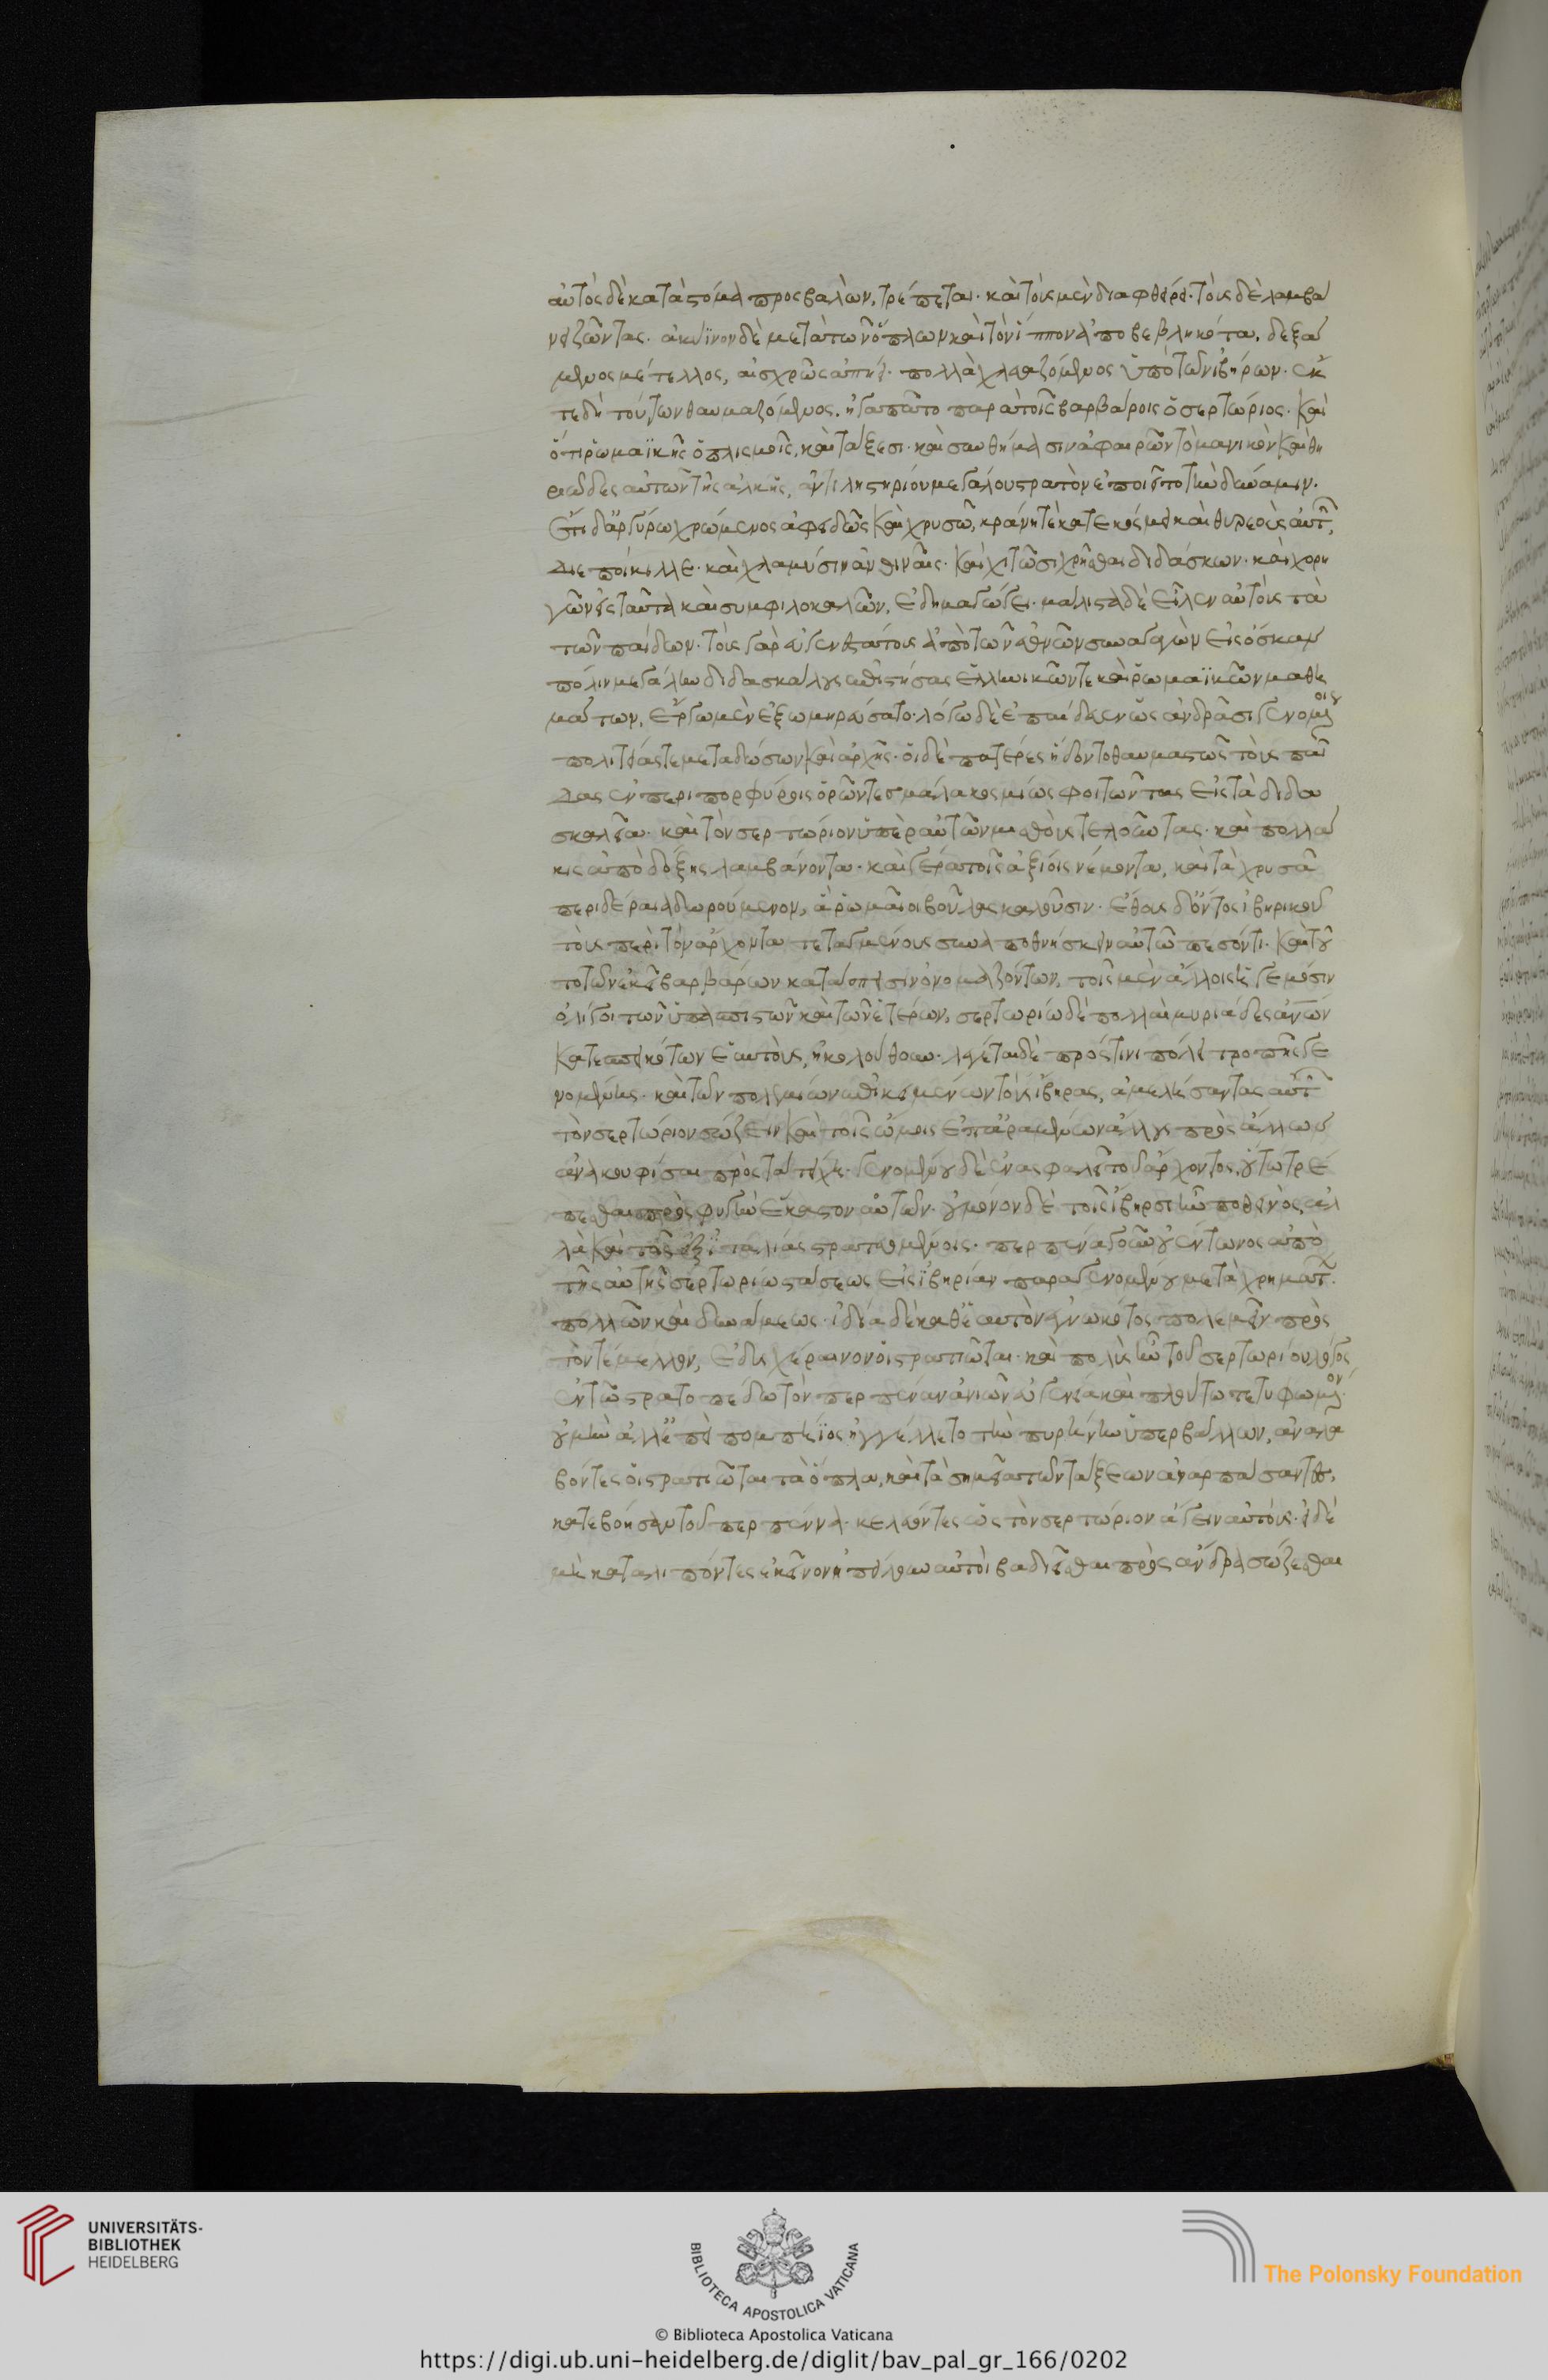 αὐτὸς δὲ κατὰ στόμα προσβαλὼν, τρέπεται· καὶ τοὺς μὲν διαφθείρει· τοὺς δὲ λαμβά
νει ζῶντας. ἀκυΐνον δὲ μετὰ τῶν ὅπλων καὶ τὸν ἵππον ἀποβεβληκότα, δεξά
μενος μέτελλος, αἰσχρῶς ἀπήει· πολλὰ χλευαζόμενος ὑπὸ τῶν ἰβήρων. ἔκ
τε δὴ τούτων θαυμαζόμενος, ἠγαπᾶτο παρὰ τοῖς βαρβάροις ὁ σερτώριος. καὶ
ὅτι ῥωμαϊκοῖς ὁπλισμοῖς, καὶ τάξεσι· καὶ συνθήμασιν ἀφαιρῶν τὸ μανικὸν καὶ θη
ριῶδες αὐτῶν τῆς ἀλκῆς, ἀντὶ ληστηρίου μεγάλου στρατὸν ἐποιεῖτο τὴν δύναμιν.
ἔτι δ' ἀργύρω χρώμενος ἀφειδῶς καὶ χρυσῶ, κράνη τὲ κατεκόσμει καὶ θυρεοὺς αὐτ
διεποίκιλλε· καὶ χλαμύσιν ἀνθιναῖς· καὶ χιτῶσι χρῆσθαι διδάσκων· καὶ χορη
γῶν εἰς ταῦτα καὶ συμφιλοκαλῶν, ἐδημαγώγει. μάλιστα δὲ εἷλεν αὐτοὺς τὰ
τῶν παίδων· τοὺς γὰρ εὐγενεστάτους ἀπὸ τῶν ἐθνῶν συναγαγὼν εἰς ὄσκαν
πόλιν μεγάλην διδασκάλους ἐπιστήσας ἑλληνικῶν τε καὶ ῥωμαϊκῶν μαθη
μάτων, ἔργω μὲν ἐξωμηρεύσατο· λόγω δὲ ἐπαίδευεν ὡς ἀνδράσι γενομένοις
πολιτείας τε μεταδώσων καὶ ἀρχῆς. οἱ δὲ πατέρες ἥδοντο θαυμαστῶς τοὺς παῖ
δας ἐν περιπορφύροις ὁρῶντες μάλα κοσμίως φοιτῶντας εἰς τὰ διδα
σκαλεῖα· καὶ τὸν σερτώριον ὑπὲρ αὐτῶν μισθοὺς τελοῦντας· καὶ πολλά
κις ἀποδόξης λαμβάνοντα· καὶ γέρα τοῖς ἀξίοις νέμοντα, καὶ τὰ χρυσᾶ
περιδέραια δωρούμενον, ἃ ῥωμαῖοι βούλλας καλοῦσιν. ἔθους δ' ὄντος ἰβηρικοῦ
τοὺς περὶ τὸν ἄρχοντα τεταγμένους συναποθνήσκειν αὐτῶ πεσόντι. καὶ τοῦ
το τῶν ἐκεῖ βαρβάρων κατάσπεισιν ὀνομαζόντων, τοῖς μὲν ἄλλοις ἡγεμόσιν
ὀλίγοι τῶν ὑπασπιστῶν καὶ τῶν ἑτέρων, σερτωρίω δὲ πολλαὶ μυριάδες ἀνῶν
κατεσπεικότων ἑαυτοὺς, ἠκολούθουν. λέγεται δὲ πρός τινι πόλει τροπῆς γε
νομένης· καὶ τῶν πολεμίων ἐπικειμένων τοὺς ἴβηρας, ἀμελήσαντας αὑτ
τὸν σερτώριον σώζειν καὶ τοῖς ὤμοις ἐπαραμένων ἄλλους πρὸς ἄλλων
ἀνακουφίσαι πρὸς τὰ τείχη· γενομένου δὲ ἐν ἀσφαλεῖ τοῦ ἄρχοντος, οὕτω τρέ
πεσθαι πρὸς φυγὴν ἕκαστον αὐτῶν. οὐ μόνον δὲ τοῖς ἴβηρσιν ἦν ποθεινὸς ἀλ
λὰ καὶ τοῖς ἐξ ἰταλίας στρατευομένοις. περπέννα γοῦν οὐέντωνος ἀπὸ
τῆς αὐτῆς σερτωρίω στάσεως εἰς ἰβηρίαν παραγενομένου μετὰ χρημάτ
πολλῶν καὶ δυνάμεως· ἰδία δὲ καθ' ἑαυτὸν ἐγνωκότος πολεμεῖν πρὸς
τὸν μέτελλον, ἐδυσχέραινον οἱ στρατιῶται· καὶ πολὺς ἦν τοῦ σερτωρίου λόγος
ἐν τῶ στρατοπέδω τὸν περπένναν ἀνιῶν εὐγενεία καὶ πλούτω τετυφωμένον.
οὐ μὴν ἀλλ' ἐπεὶ πομπήϊος ἠγγέλλετο τὴν πυρήνην ὑπερβάλλων, ἀναλα
βόντες οἱ στρατιῶται τὰ ὅπλα, καὶ τὰ σημεῖα τῶν τάξεων ἀναρπάσαντες,
κατεβόησαν τοῦ περπέννα· κελεύοντες ὡς τὸν σερτώριον ἄγειν αὐτούς· εἰ δὲ
μὴ καταλιπόντες ἐκεῖνον ἠπείλουν αὐτοὶ βαδιεῖσθαι πρὸς ἄνδρα σώζεσθαι
UNIVERSITÄTS-
BIBLIOTHEK
HEIDELBERG
BIBLIOTECA APOSTOLICA VATICANA
The Polonsky Foundation
© Biblioteca Apostolica Vaticana
https://digi.ub.uni-heidelberg.de/diglit/bav_pal_gr_166/0202